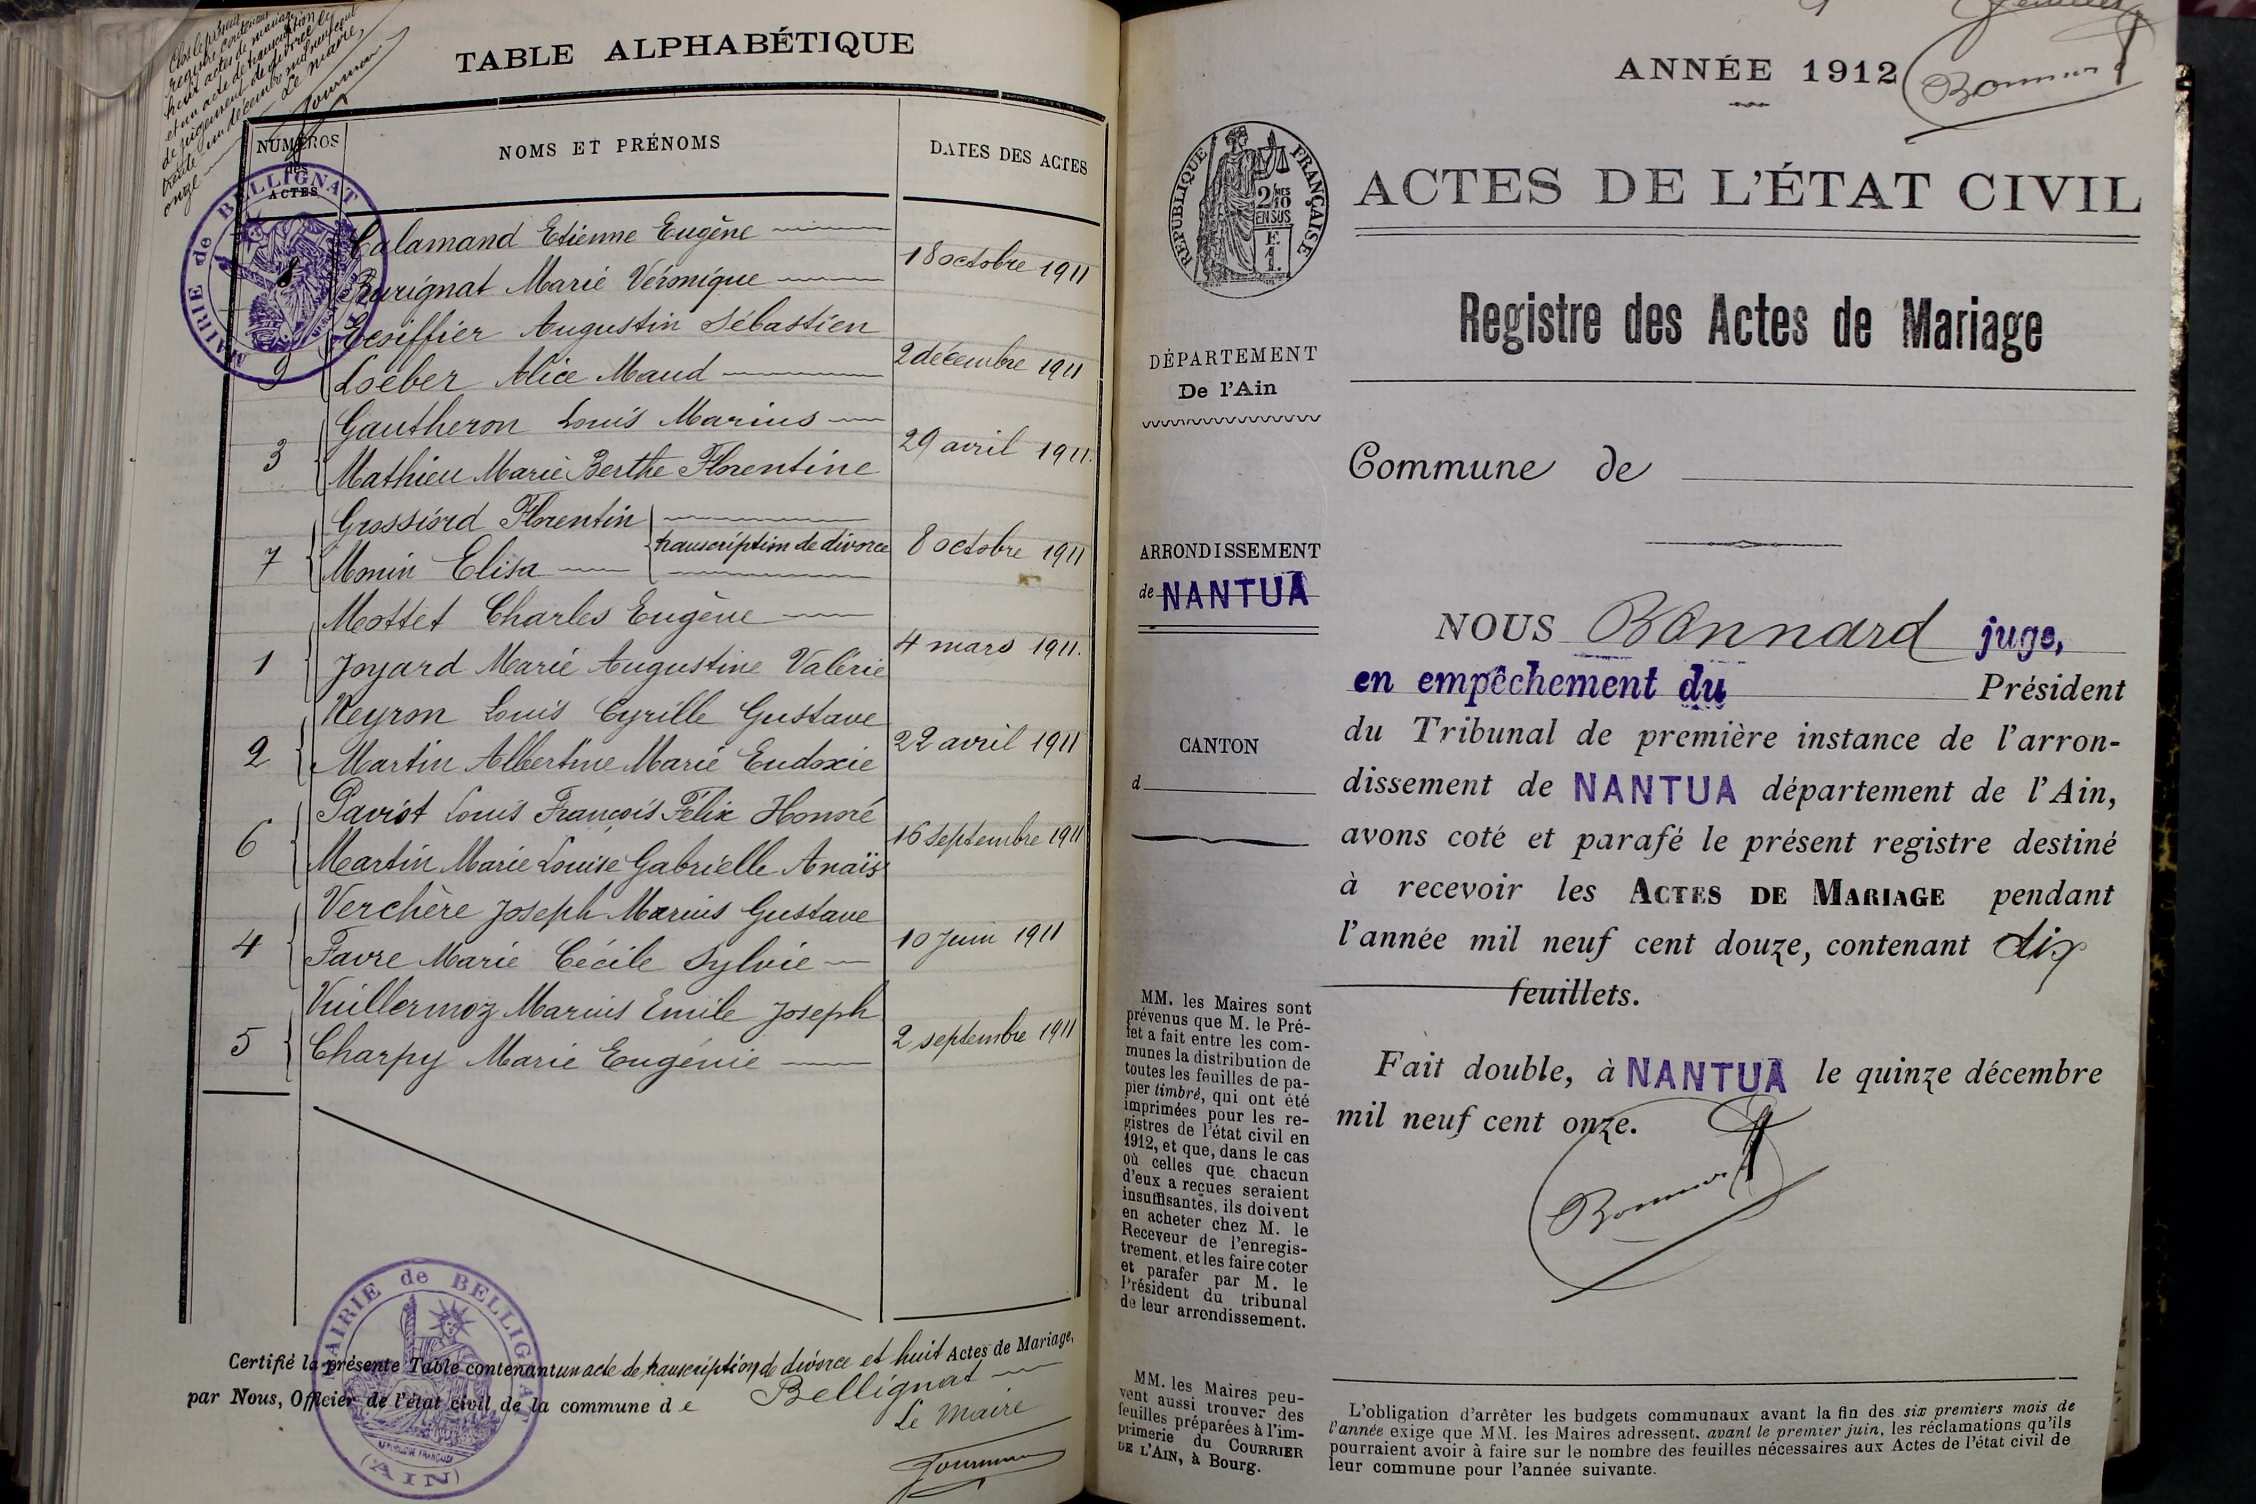 Clos le présent
registre contenant
huit actes de mariage
et un acte de transcription
de jugement de divorce le
trente-un décembre mil neuf cent
onze
Le maire,
TABLE ALPHABÉTIQUE
NUMÉROS
des
ACTES
NOMS ET PRÉNOMS
DATES DES ACTES
MAIRIE de BELLIGNAT
8
Calamand Etienne Eugène
Burignat Marie Véronique
18 octobre 1911
9
Ecoiffier Augustin Sébastien
Loeber Alice Maud
2 décembre 1911
3
Gautheron Louis Marius
Mathieu Marie Berthe Florentine
29 avril 1911.
7
Grossiord Florentin
Monin Elisa
transcription de divorce
8 octobre 1911
1
Mottet Charles Eugène
Joyard Marie Augustine Valérie
4 mars 1911.
2
Neyron Louis Cyrille Gustave
Martin Albertine Marie Eudoxie
22 avril 1911
6
Paviot Louis François Félix Honoré
Martin Marie Louise Gabrielle Anaïs
16 septembre 1911
4
Verchère Joseph Marius Gustave
Favre Marie Cécile Sylvie
10 Juin 1911
5
Vuillermoz Marius Emile Joseph
Charpy Marie Eugénie
2 septembre 1911
Certifié la présente Table contenant un acte de transcription de divorce et huit Actes de Mariage,
par Nous, Officier de l'état civil de la commune de Bellignat
Le Maire
MAIRIE de BELLIGNAT
(AIN)
ANNÉE 1912
Bonnard
RÉPUBLIQUE FRANÇAISE
2/10
MES
EN SUS
F.
1.
ACTES DE L'ÉTAT CIVIL
Registre des Actes de Mariage
DÉPARTEMENT
De l'Ain
Commune de
ARRONDISSEMENT
de NANTUA
CANTON
d
NOUS Bonnard juge,
en empêchement du Président
du Tribunal de première instance de l'arron-
dissement de NANTUA département de l'Ain,
avons coté et parafé le présent registre destiné
à recevoir les ACTES DE MARIAGE pendant
l'année mil neuf cent douze, contenant dix
feuillets.
Fait double, à NANTUA le quinze décembre
mil neuf cent onze.
Bonnard
MM. les Maires sont
prévenus que M. le Pré-
fet a fait entre les com-
munes la distribution de
toutes les feuilles de pa-
pier timbré, qui ont été
imprimées pour les re-
gistres de l'état civil en
1912, et que, dans le cas
où celles que chacun
d'eux a reçues seraient
insuffisantes, ils doivent
en acheter chez M. le
Receveur de l'enregis-
trement, et les faire coter
et parafer par M. le
Président du tribunal
de leur arrondissement.
MM. les Maires peu-
vent aussi trouver des
feuilles préparées à l'im-
primerie du COURRIER
DE L'AIN, à Bourg.
L'obligation d'arrêter les budgets communaux avant la fin des six premiers mois de
l'année exige que MM. les Maires adressent, avant le premier juin, les réclamations qu'ils
pourraient avoir à faire sur le nombre des feuilles nécessaires aux Actes de l'état civil de
leur commune pour l'année suivante.